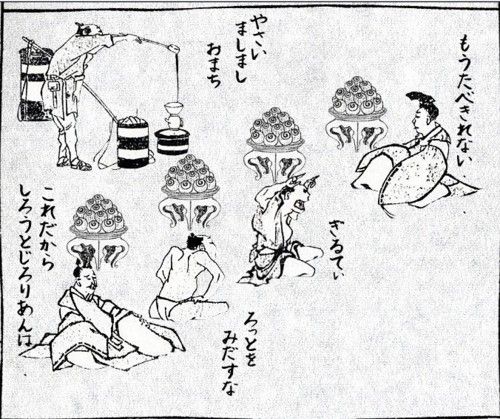 もうたべきれない
やさい
ましまし
おまち
ぎるてぃ
ろっとを
みだすな
これだから
しろうとじろりあんは